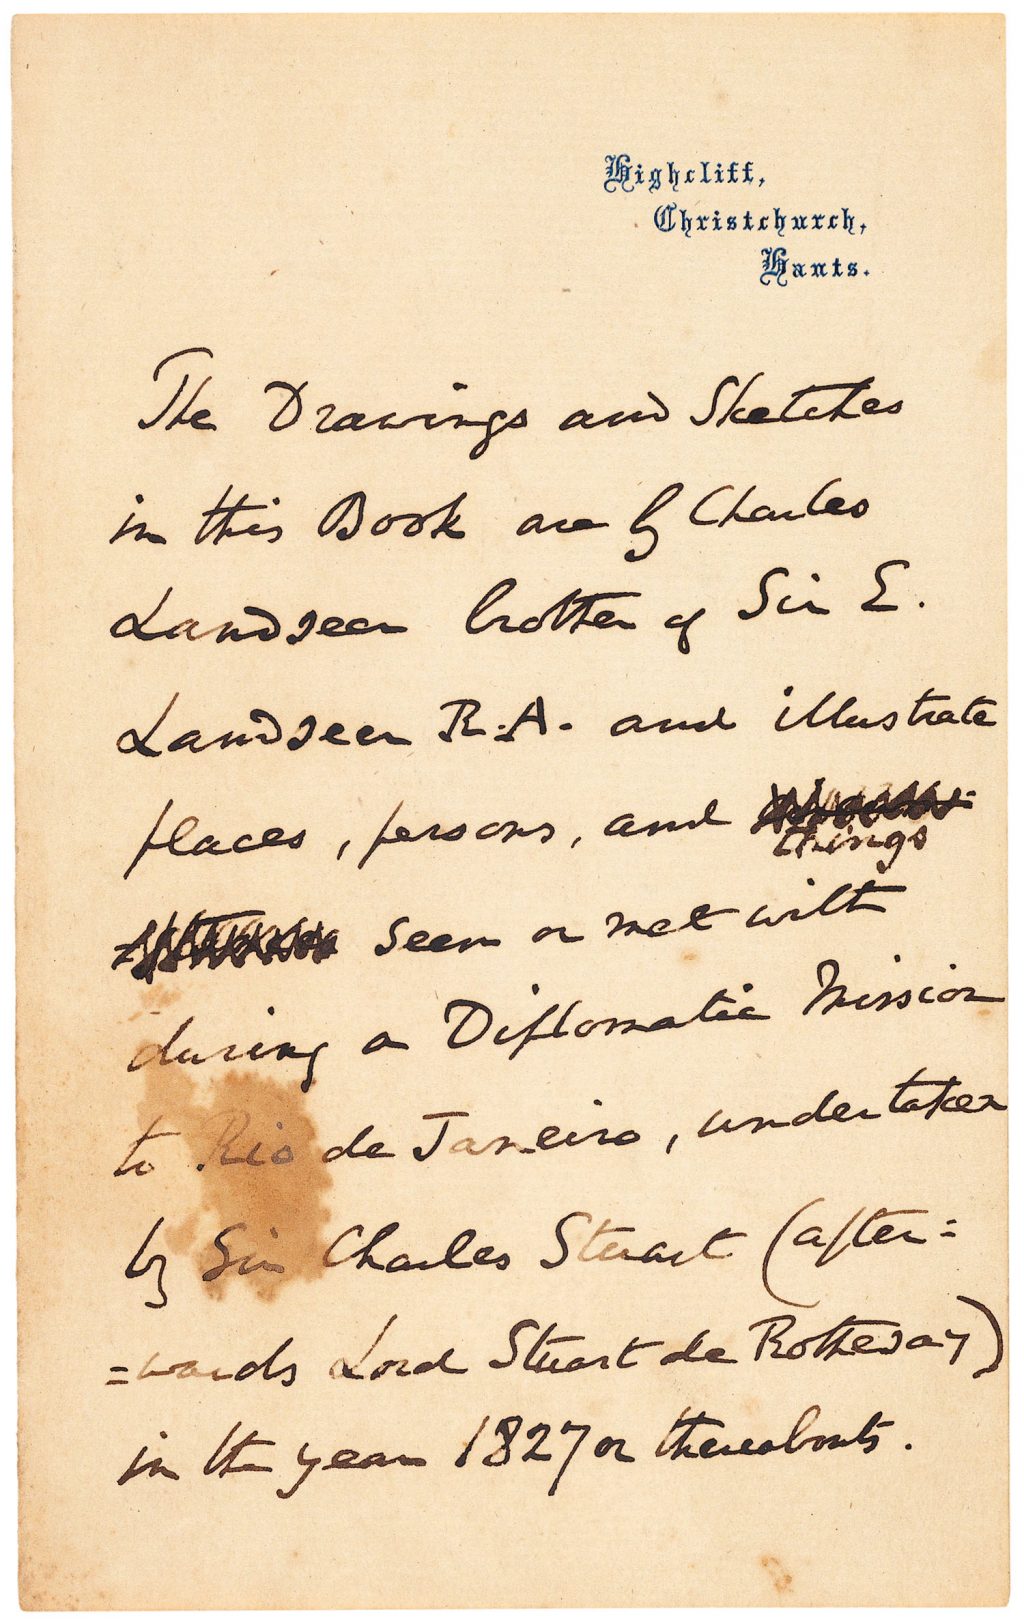 Highcliff,
Christchurch,
Hants.
The Drawings and Sketches
in this Book are by Charles
Landseer brother of Sir E.
Landseer R.A. and illustrate
places, persons, and
things
seen or met with
during a Diplomatic Mission
to Rio de Janeiro, undertaken
by Sir Charles Stuart (after=
=wards Lord Stuart de Rothesay)
in the year 1827 or thereabouts.